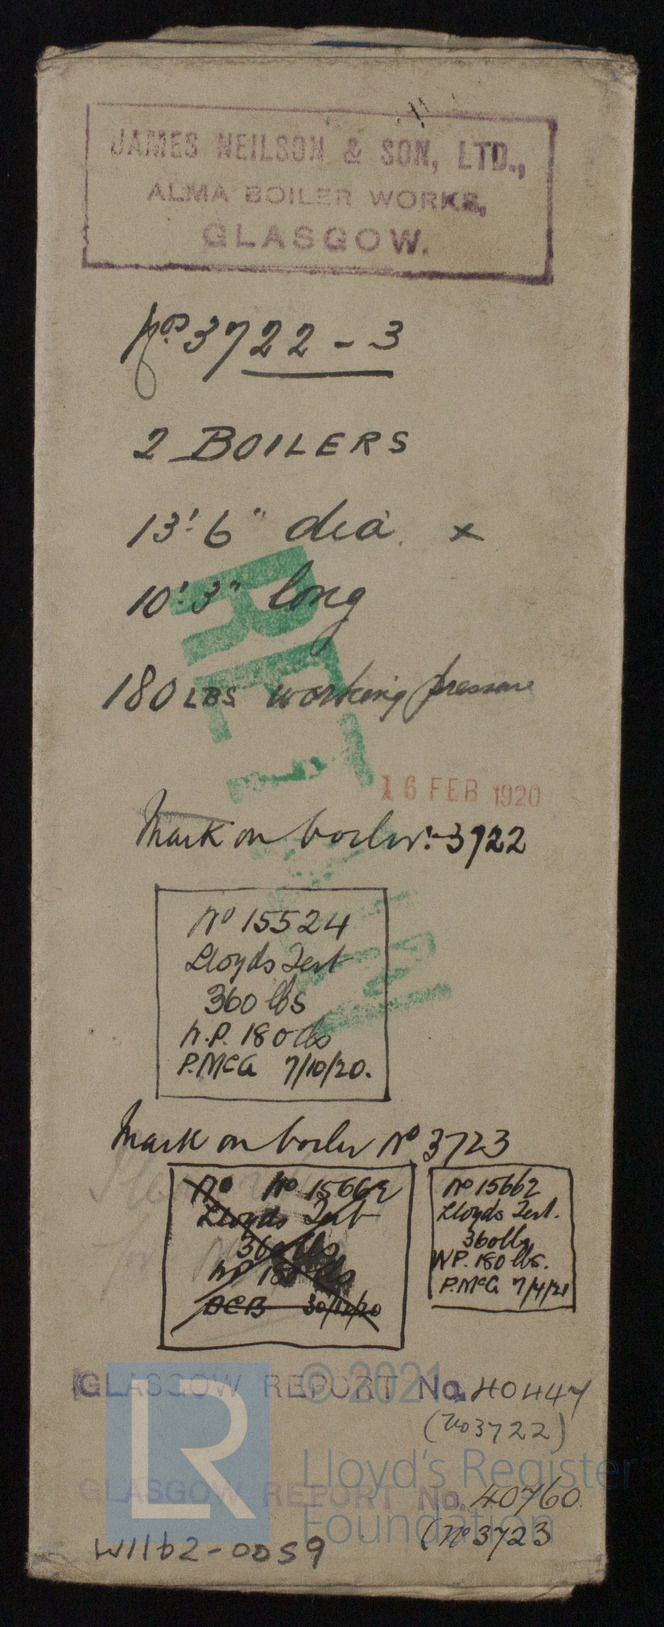 JAMES NEILSON & SON, LTD.,
ALMA BOILER WORKS,
GLASGOW.
Nos. 3722 - 3
2 BOILERS
13'. 6" dia. x
10'. 3" long
180 LBS working pressure
16 FEB 1920
Mark on boiler:- 3722
No 15524
Lloyds Test
360 lbs
W.P. 180 lbs
P.McG 7/10/20.
Mark on boiler No 3723
No No 15662
Lloyds Test
360 lbs
WP 180 lbs
30/12/20
No 15662
Lloyds Test.
360 lbs
WP. 180 lbs.
P.McG 7/4/21
GLASGOW REPORT No. 40447
(No 3722)
GLASGOW REPORT No. 40760
(No 3723
W1162-0059
© 2021
LR
Lloyd's Register
Foundation